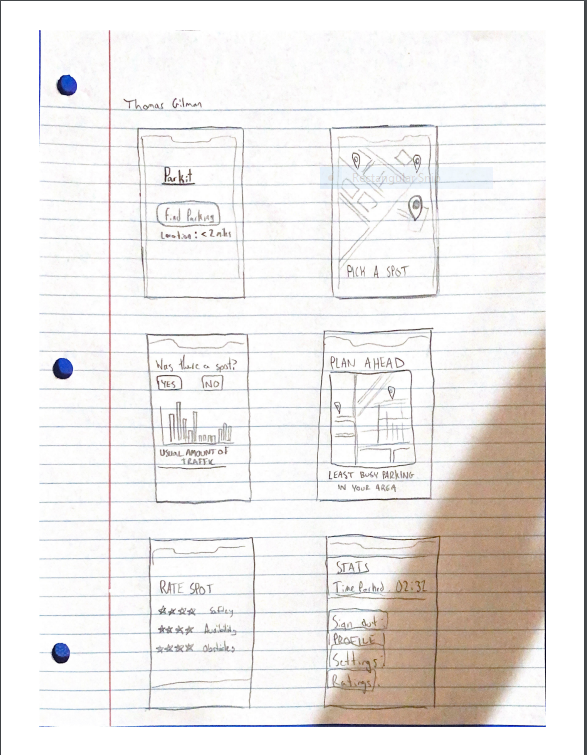 Thomas Gilman
Parkit
Find Parking
Location: < 2 miles
PICK A SPOT
Was there a spot?
YES NO
USUAL AMOUNT OF
TRAFFIC
PLAN AHEAD
LEAST BUSY PARKING
IN YOUR AREA
RATE SPOT
Safety
Availability
Obstacles
STATS
Time Parked 02:32
Sign out:
PROFILE
Settings:
Ratings: